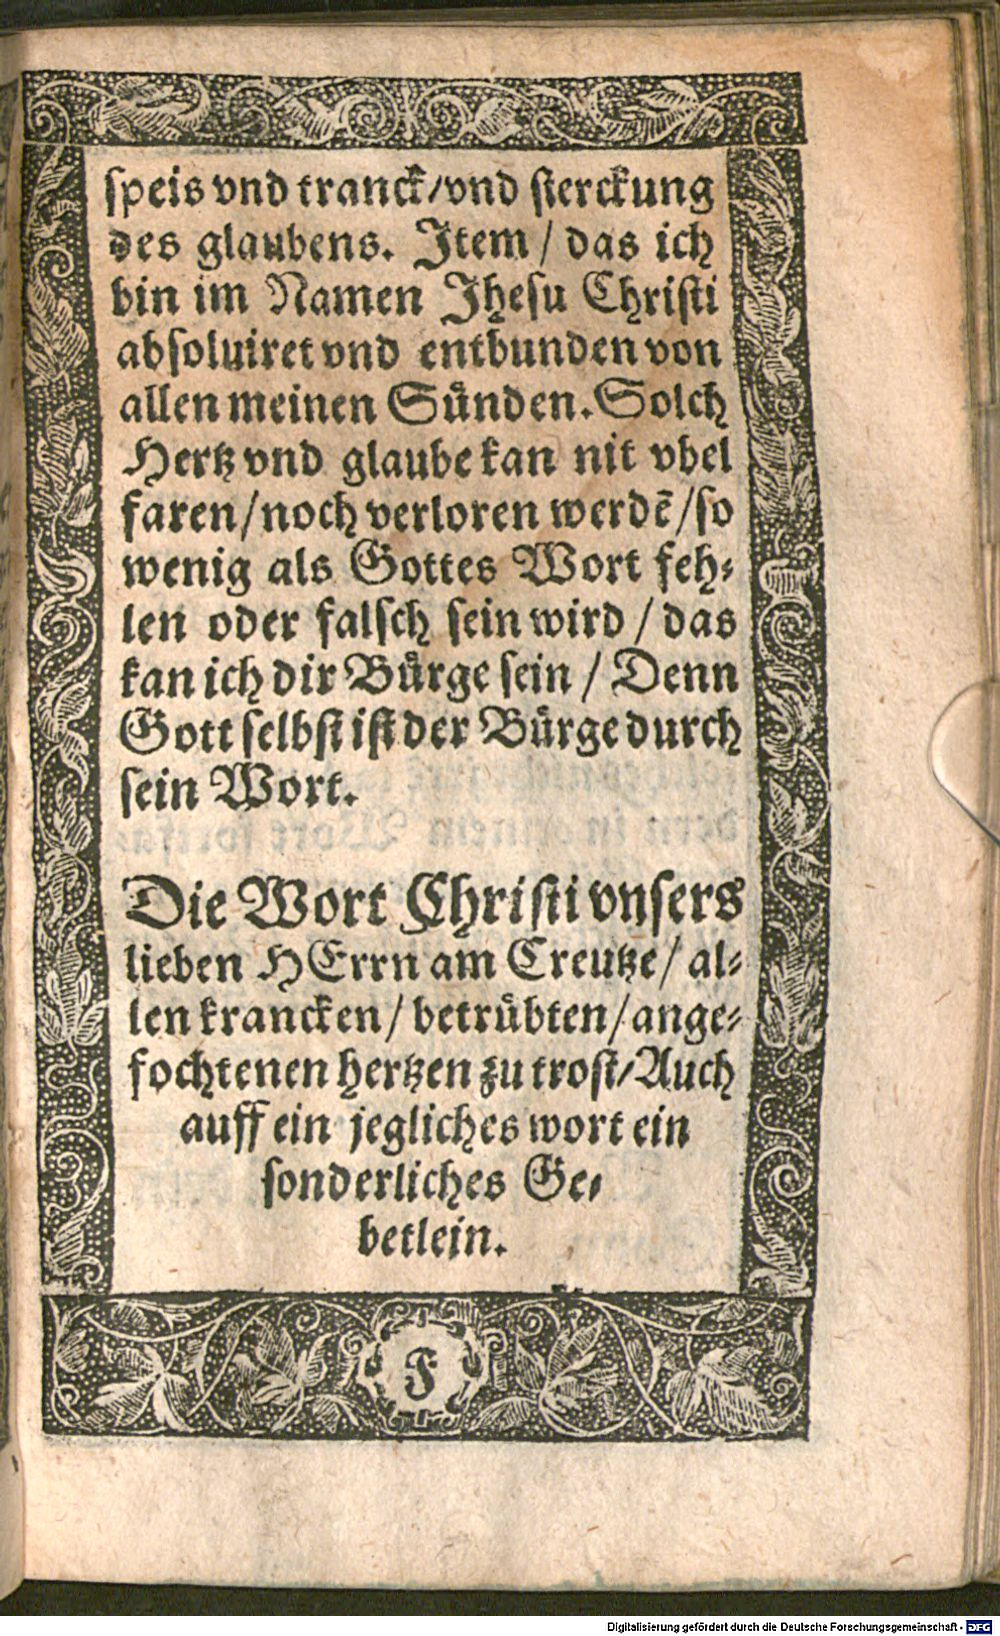 speis vnd tranck/vnd sterckung
des glaubens. Item / das ich
bin im Namen Jhesu Christi
absoluiret vnd entbunden von
allen meinen Sünden. Solch
Hertz vnd glaube kan nit vbel
faren/noch verloren werdẽ/so
wenig als Gottes Wort feh⸗
len oder falsch sein wird / das
kan ich dir Bürge sein / Denn
Gott selbst ist der Bürge durch
sein Wort.
Die Wort Christi vnsers
lieben HErrn am Creutze/ al⸗
len krancken/ betrübten/ ange⸗
fochtenen hertzen zu trost/Auch
auff ein jegliches wort ein
sonderliches Ge⸗
betlein.
F
Digitalisierung gefördert durch die Deutsche Forschungsgemeinschaft - DFG